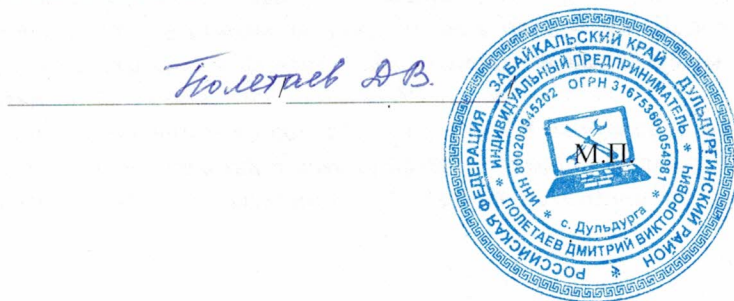 Полетаев Д.В.
М.П.
РОССИЙСКАЯ ФЕДЕРАЦИЯ ЗАБАЙКАЛЬСКИЙ КРАЙ ДУЛЬДУРГИНСКИЙ РАЙОН *
* ИНДИВИДУАЛЬНЫЙ ПРЕДПРИНИМАТЕЛЬ * ПОЛЕТАЕВ ДМИТРИЙ ВИКТОРОВИЧ
* ИНН 800200945202 ОГРН 316753600054981 *
с. Дульдурга